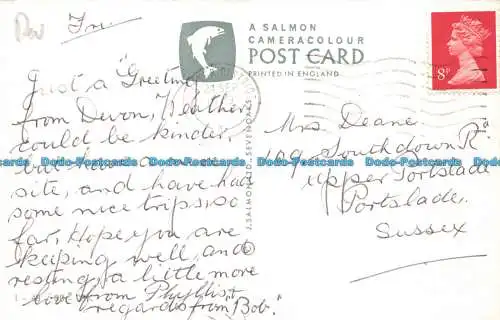 Dev
Fri.
A SALMON
CAMERACOLOUR
POST CARD
PRINTED IN ENGLAND
8P
Just a "Greeting"
from Devon, Weather
could be kinder,
but have a nice
site, and have had
some nice trips, so
far, Hope you are
keeping well, and
resting, a little more
love from Phyllis, +
regards from Bob."
J. SALMON LTD., SEVENOAKS
Mrs Deane,
109 Southdown Rd
Upper Portslade
Portslade,
Sussex
Postcards Postcards Postcards Postcards Postcards